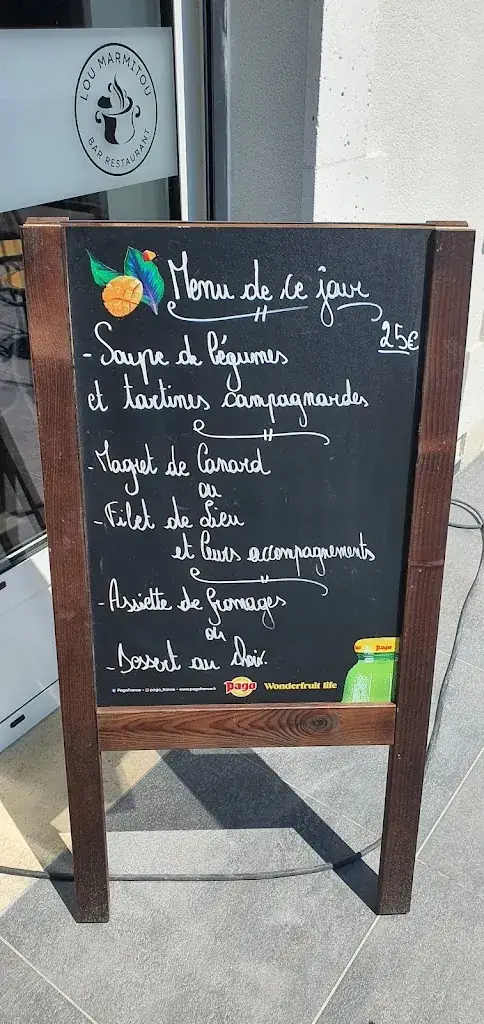 LOU MARMITOU
BAR RESTAURANT
Menu de ce jour
25€
- Soupe de légumes
et tartines campagnardes
- Magret de Canard
ou
- Filet de Lieu
et leurs accompagnements
- Assiette de fromages
ou
- Dessert au choix.
PagoFrance - pago_france - www.pagofrance.fr
pago
Wonderfruit life
pago